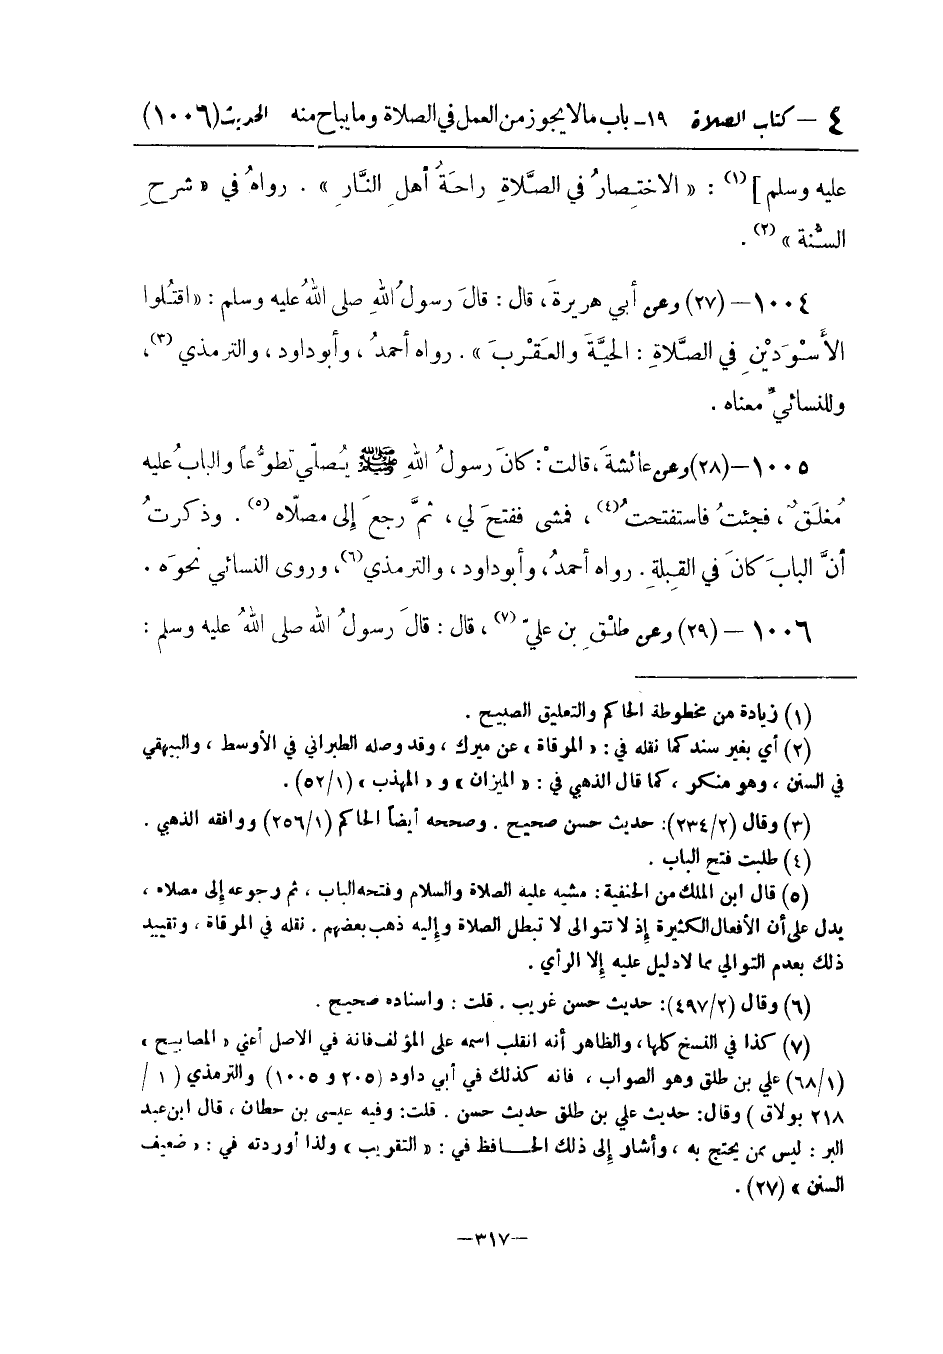 ٤ – كتاب الصلاة ١٩ ـ باب ما لا يجوز من العمل في الصلاة وما يباح منه الحديث (١٠٠٦)
عليه وسلم ] (١) : « الاختصارُ في الصَّلاةِ راحَةُ أهلِ النَّارِ » . رواهُ في « شرحِ
السُّنة » (٢) .
١٠٠٤ – (٢٧) وعن أبي هريرةَ ، قال : قالَ رسولُ اللهِ صلى اللهُ عليه وسلم : « اقتُلوا
الأَسْوَدَيْنِ في الصَّلاةِ : الحيَّةَ والعَقْربَ » . رواه أحمدُ ، وأبو داود ، والترمذي (٣) ،
وللنسائيِّ معناه .
١٠٠٥ – (٢٨) وعن عائشةَ ، قالتْ : كانَ رسولُ اللهِ ﷺ يُصلّي تطوُّعاً والبابُ عليه
مُغلَقٌ ، فجئتُ فاستفتحتُ (٤) ، فمشى ففتحَ لي ، ثمَّ رجعَ إلى مصلّاه (٥) . وذكرتُ
أنَّ البابَ كانَ في القبلةِ . رواه أحمدُ ، وأبو داود ، والترمذي (٦) ، وروى النسائي نحوَه .
١٠٠٦ – (٢٩) وعن طلْقِ بن عليّ (٧) ، قال : قالَ رسولُ الله صلى اللهُ عليه وسلم :
(١) زيادة من مخطوطة الحاكم والتعليق الصبيح .
(٢) أي بغير سند كما نقله في : « المرقاة » عن ميرك ، وقد وصله الطبراني في الأوسط ، والبيهقي
في السنن ، وهو منكر ، كما قال الذهبي في : « الميزان » و « المهذب » (٥٢/١) .
(٣) وقال (٢٣٤/٢) : حديث حسن صحيح . وصححه أيضاً الحاكم (٢٥٦/١) ووافقه الذهبي .
(٤) طلبت فتح الباب .
(٥) قال ابن الملك من الحنفية : مشيه عليه الصلاة والسلام وفتحه الباب ، ثم رجوعه إلى مصلاه ،
يدل على أن الأفعال الكثيرة إذ لا تتوالى لا تبطل الصلاة وإليه ذهب بعضهم . نقله في المرقاة ، وتقييد
ذلك بعدم التوالي مما لا دليل عليه إلا الرأي .
(٦) وقال (٤٩٧/٢) : حديث حسن غريب . قلت : واسناده صحيح .
(٧) كذا في النسخ كلها ، والظاهر أنه انقلب اسمه على المؤلف فانه في الاصل أعني « المصابيح »
(٦٨/١) علي بن طلق وهو الصواب ، فانه كذلك في أبي داود (٢٠٥ و ١٠٠٥) والترمذي ( ١ /
٢١٨ بولاق ) وقال : حديث علي بن طلق حديث حسن . قلت : وفيه عيسى بن حطان ، قال ابن عبد
البر : ليس ممن يحتج به ، وأشار إلى ذلك الحافظ في : « التقريب » ولذا أوردته في : « ضعيف
السنن » (٢٧) .
–٣١٧–